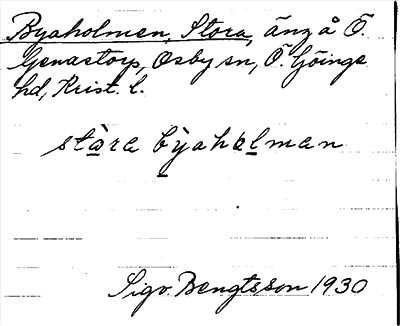 Byaholmen, Stora, äng å Ö.
Genastorp, Osby sn, Ö. Göinge
hd, Krist. l.
stàra bỳahalman
Sigv. Bengtsson 1930